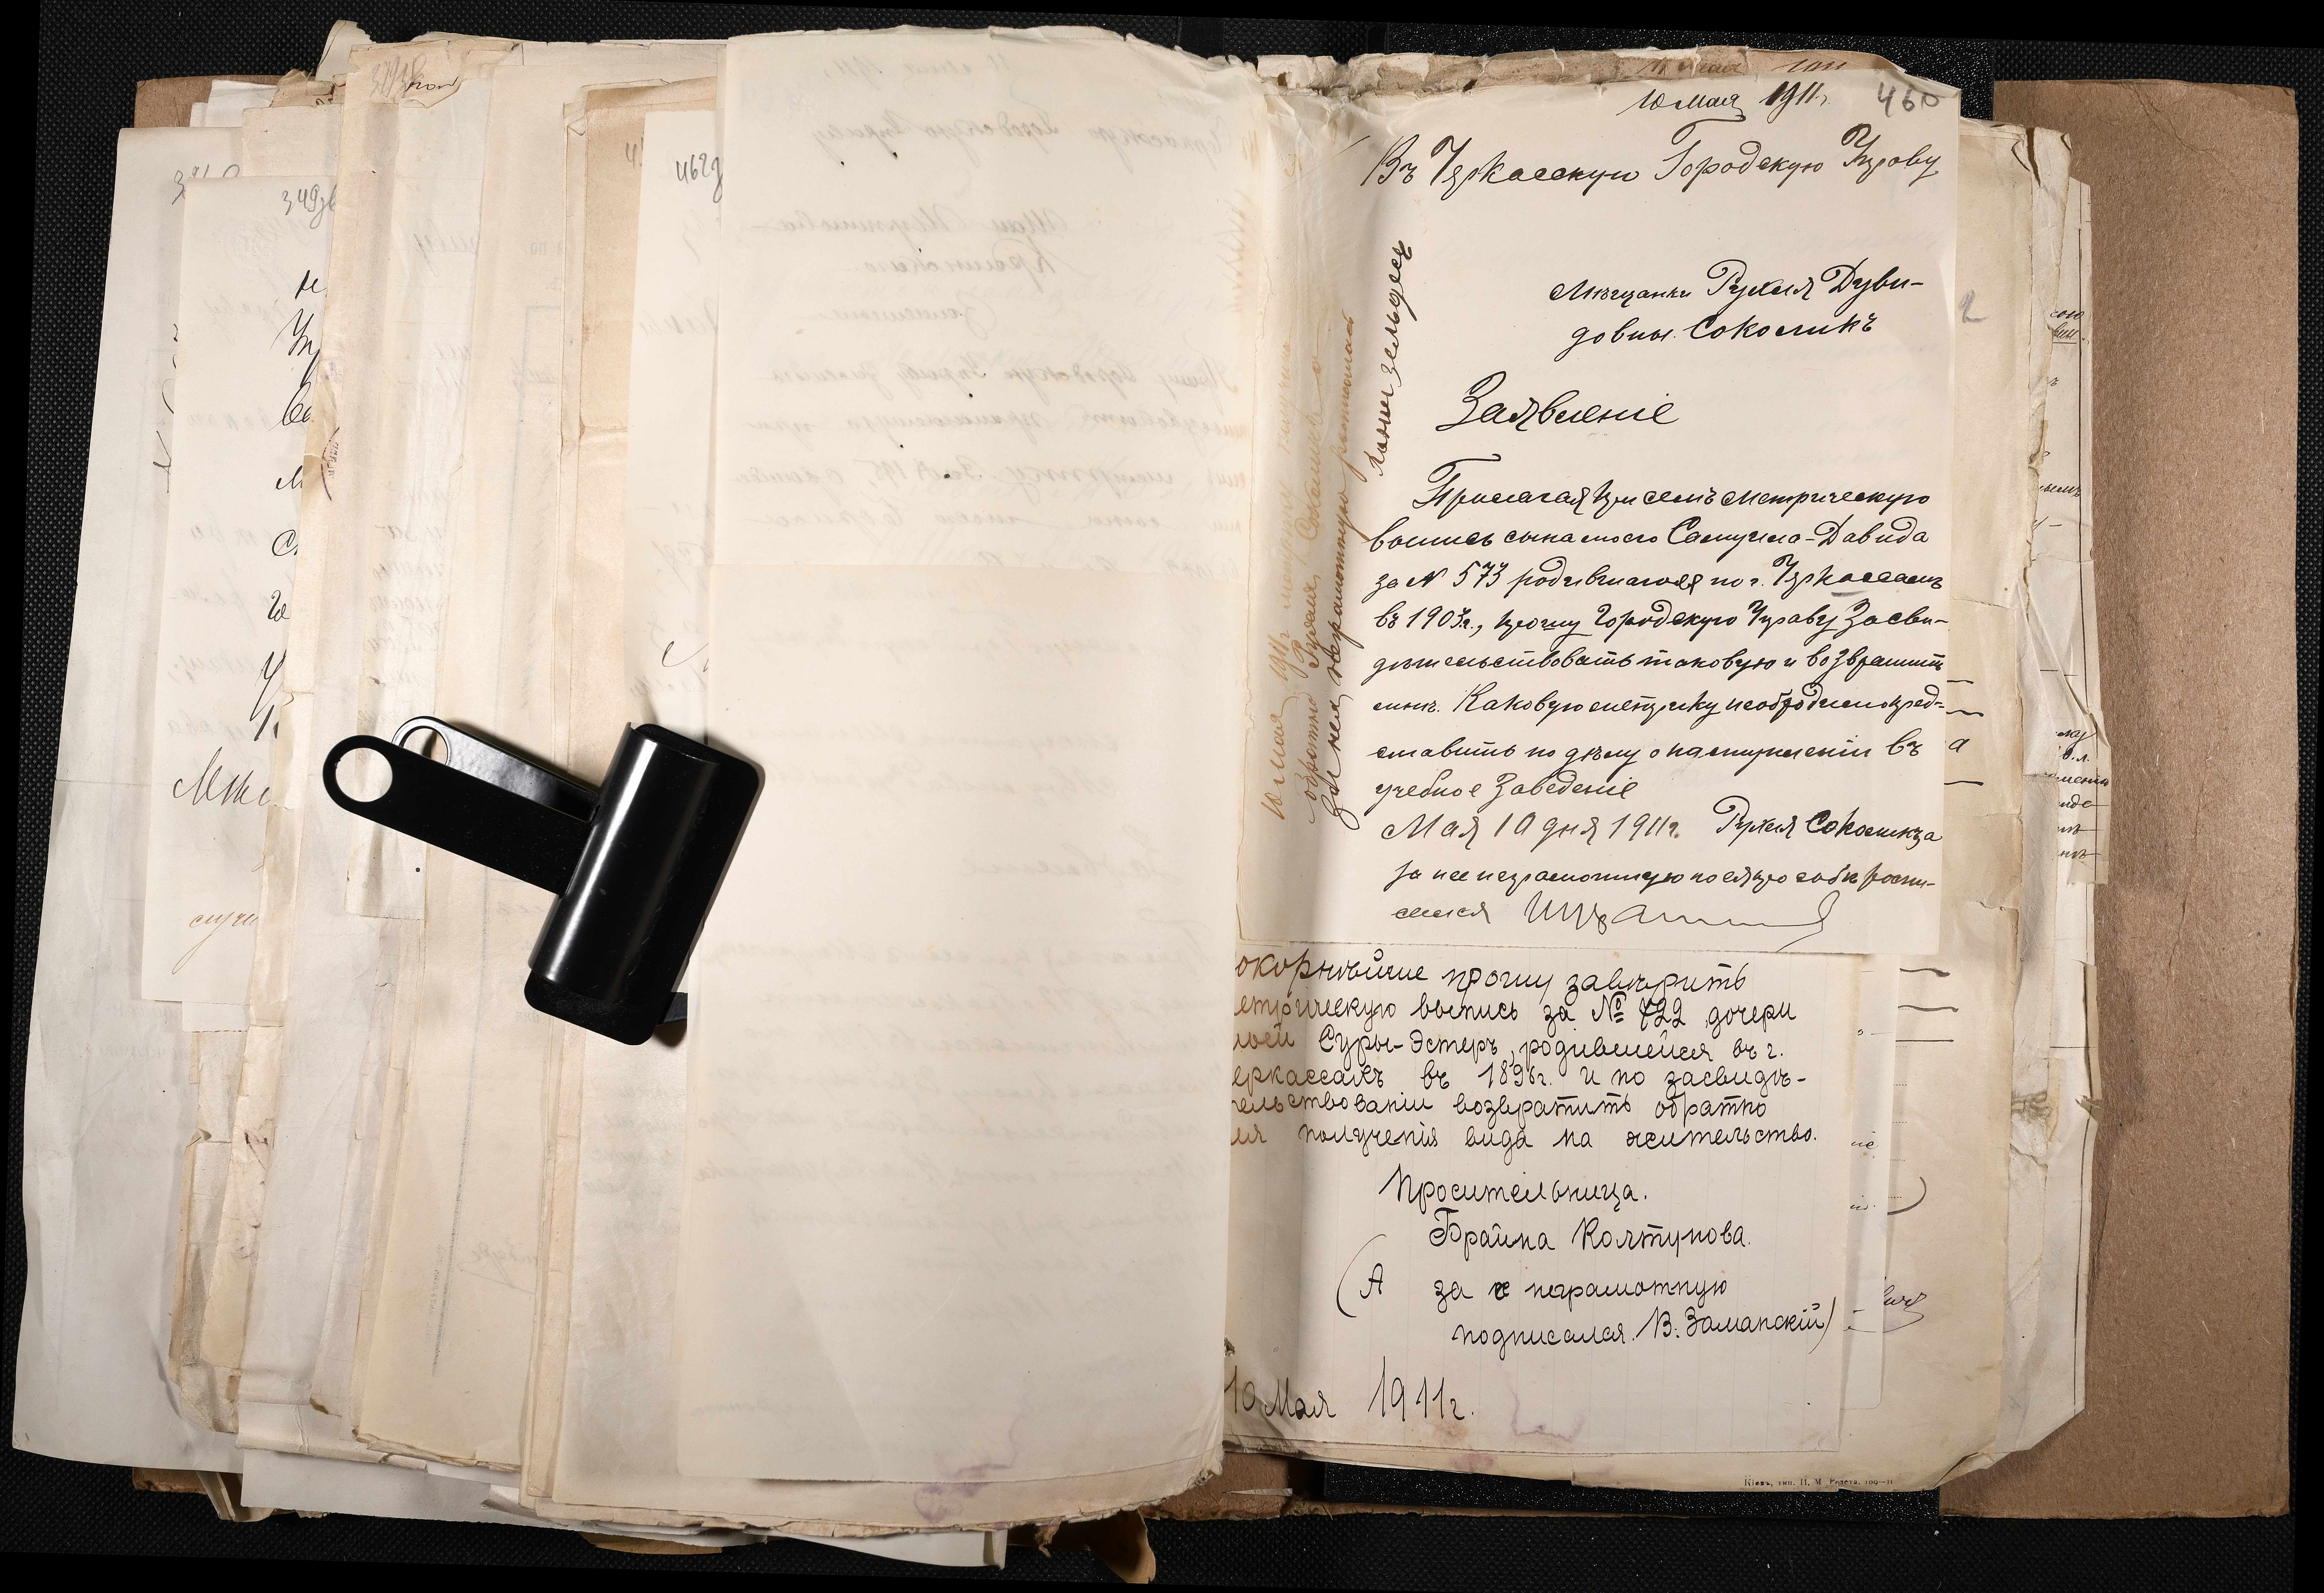 10 Мая 1911 г.
460
Въ Черкасскую Городскую Управу
Мѣщанки Рухля Дуви-
довны Соколикъ
Заявленіе
Прилагая при семъ метрическую
выпись сына моего Самуила-Давида
за № 573 родившагося по г. Черкассамъ
въ 1903 г., прошу Городскую Управу засви-
дѣтельствовать таковую и возвратить
мнѣ. Каковую метрику необходимо пред-
ставить по дѣлу о поступленіи въ
учебное заведеніе
Мая 10 дня 1911 г. Рухля Соколикъ а
за нее неграмотную по ея просьбѣ роспи-
сался
10 Мая 1911 г. метрику получила
обратно Рухля Соколикъ а
за нея неграмотную росписался
окорнѣйше прошу завѣрить
етрическую выпись за № 722 дочери
моей Суры-Эстеръ, родившейся въ г.
еркассахъ въ 1896 г. и по засвидѣ-
тельствованіи возвратить обратно
ля полученія вида на жительство.
Просительница.
Брайна Колтунова.
(А за неграмотную
подписался В. Заманскій)
10 Мая 1911 г.
462
349